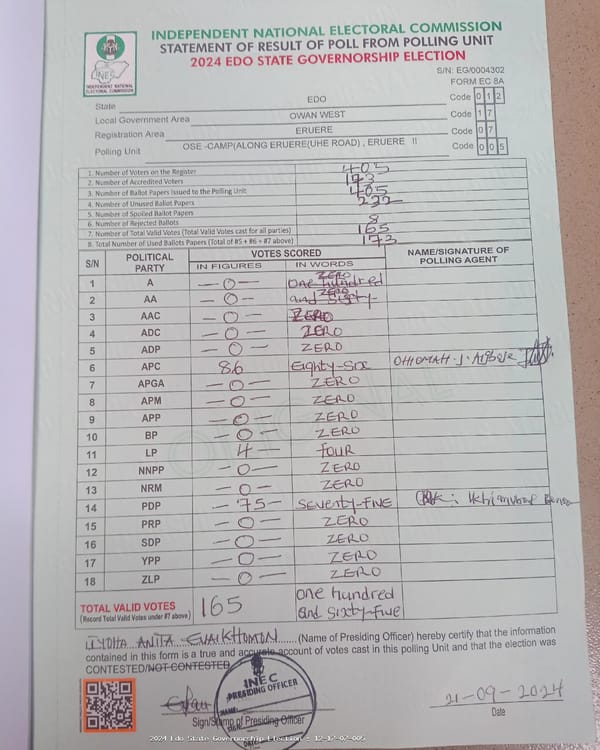 INDEPENDENT NATIONAL ELECTORAL COMMISSION
STATEMENT OF RESULT OF POLL FROM POLLING UNIT
2024 EDO STATE GOVERNORSHIP ELECTION
INEC
INDEPENDENT NATIONAL
ELECTORAL COMMISSION
S/N: EG/0004302
FORM EC 8A
State EDO Code 0 1 2
Local Government Area OWAN WEST Code 1 7
Registration Area ERUERE Code 0 7
Polling Unit OSE -CAMP(ALONG ERUERE(UHE ROAD) , ERUERE II Code 0 0 5
1. Number of Voters on the Register 405
2. Number of Accredited Voters 173
3. Number of Ballot Papers Issued to the Polling Unit 405
4. Number of Unused Ballot Papers 232
5. Number of Spoiled Ballot Papers
6. Number of Rejected Ballots 8
7. Number of Total Valid Votes (Total Valid Votes cast for all parties) 165
8. Total Number of Used Ballots Papers (Total of #5 + #6 + #7 above) 173
S/N POLITICAL PARTY VOTES SCORED NAME/SIGNATURE OF POLLING AGENT
IN FIGURES IN WORDS
1 A -0- ZERO one hundred
2 AA -0- ZERO and sixty-
3 AAC -0- ZERO
4 ADC -0- ZERO
5 ADP -0- ZERO
6 APC 86 Eighty-Six OHIOMAH .J.
7 APGA -0- ZERO
8 APM -0- ZERO
9 APP -0- ZERO
10 BP -0- ZERO
11 LP 4- four
12 NNPP -0- ZERO
13 NRM -0- ZERO
14 PDP -75- SEVENTY-FIVE
15 PRP -0- ZERO
16 SDP -0- ZERO
17 YPP -0- ZERO
18 ZLP -0- ZERO
TOTAL VALID VOTES 165 one hundred
(Record Total Valid Votes under #7 above) and sixty-five
ANITA (Name of Presiding Officer) hereby certify that the information
contained in this form is a true and accurate account of votes cast in this polling Unit and that the election was
CONTESTED/NOT CONTESTED
INEC
PRESIDING OFFICER
NAME:
SIGN:
DATE:
Sign/Stamp of Presiding Officer
21-09-2024
Date
2024 Edo State Governorship Election - 12-17-07-005